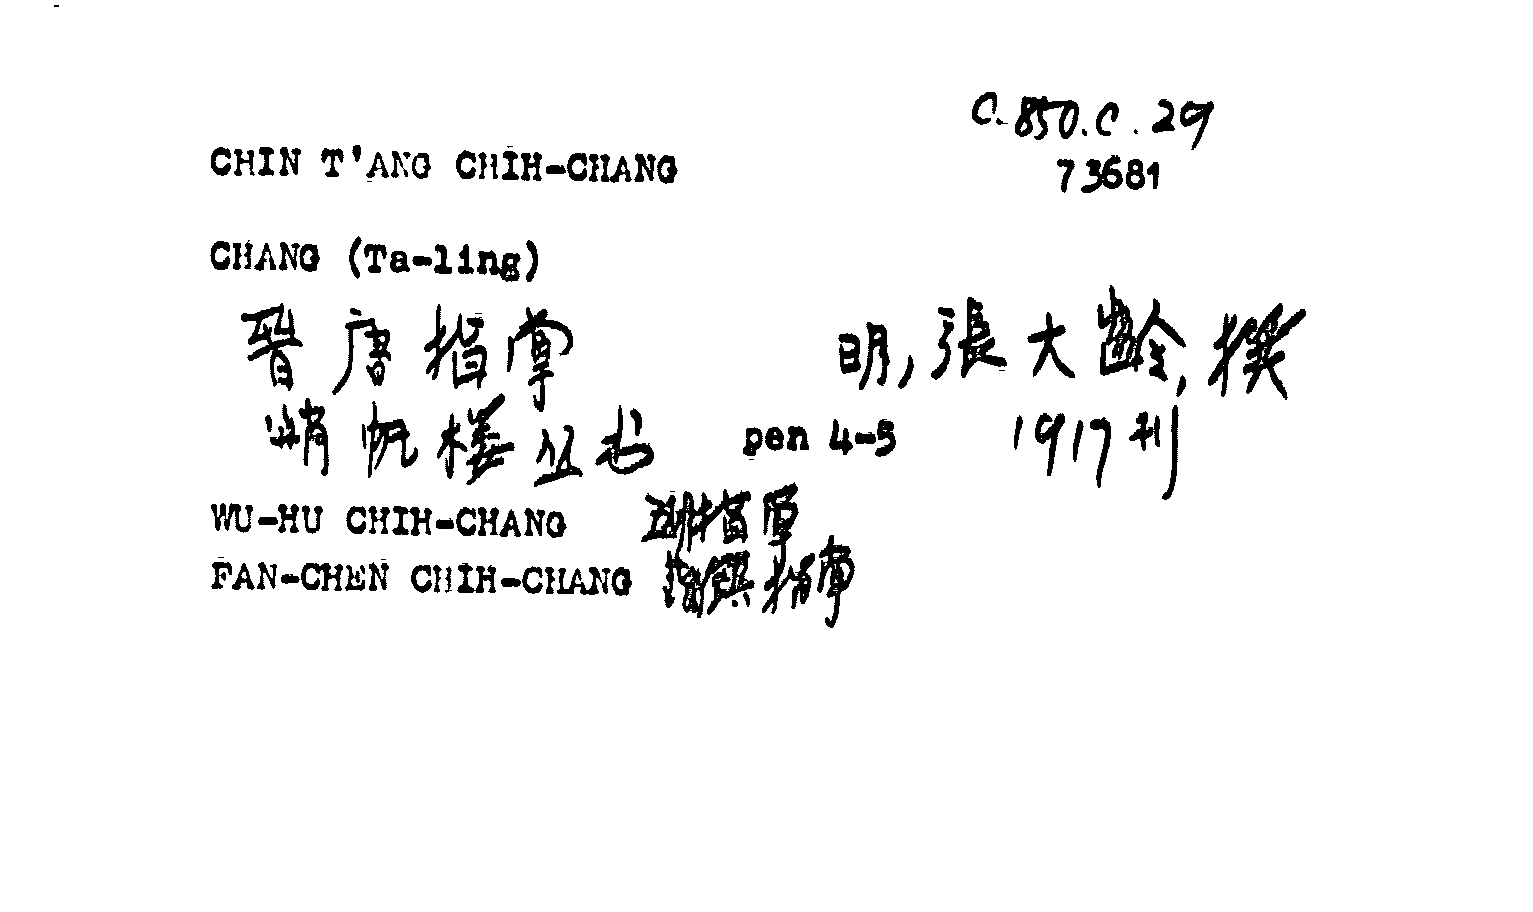 C.850.C.29
CHIN T'ANG CHIH-CHANG
73681
CHANG (Ta-ling)
晋唐指掌 明,張大齡,撰
峭帆楼丛书 pen 4-5 1917刊
WU-HU CHIH-CHANG 五胡指掌
FAN-CHEN CHIH-CHANG 藩鎮指掌